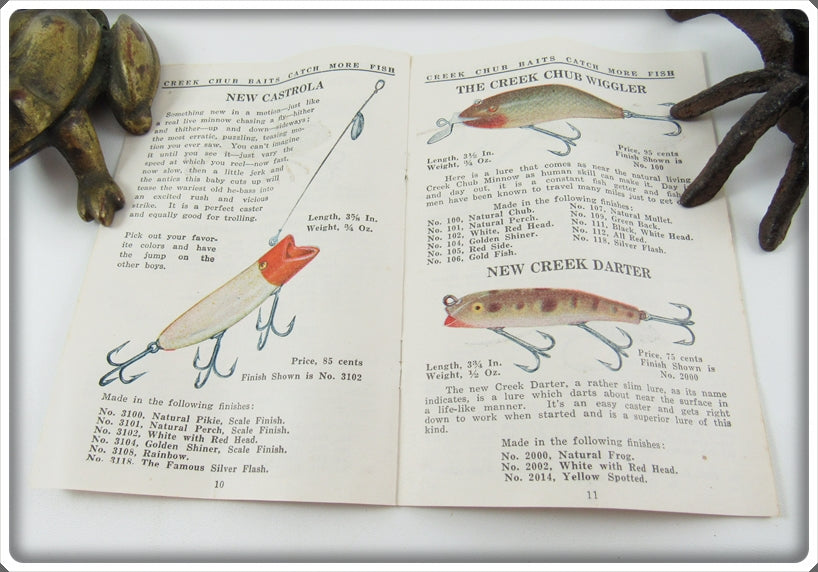 CREEK CHUB BAITS CATCH MORE FISH
NEW CASTROLA
Something new in a motion—just like
a real live minnow chasing a fly—hither
and thither—up and down—sideways;
the most erratic, puzzling, teasing mo-
tion you ever saw. You can't imagine
it until you see it—just vary the
speed at which you reel—now fast,
now slow, then a little jerk and
the antics this baby cuts up will
tease the wariest old he-bass into
an excited rush and vicious
strike. It is a perfect caster
and equally good for trolling.
Length, 3⅝ In.
Weight, ¾ Oz.
Pick out your favor-
ite colors and have
the jump on the
other boys.
Price, 85 cents
Finish Shown is No. 3102
Made in the following finishes:
No. 3100, Natural Pikie, Scale Finish.
No. 3101, Natural Perch, Scale Finish.
No. 3102, White with Red Head.
No. 3104, Golden Shiner, Scale Finish.
No. 3108, Rainbow.
No. 3118, The Famous Silver Flash.
10
CREEK CHUB BAITS CATCH MORE FISH
THE CREEK CHUB WIGGLER
Length, 3½ In.
Weight, ¾ Oz.
Price, 95 cents
Finish Shown is
No. 100
Here is a lure that comes as near the natural living
Creek Chub Minnow as human skill can make it. Day in
and day out, it is a constant fish getter and
men have been known to travel many miles just to get
Made in the following finishes:
No. 100, Natural Chub.
No. 101, Natural Perch.
No. 102, White, Red Head.
No. 104, Golden Shiner.
No. 105, Red Side.
No. 106, Gold Fish.
No. 107, Natural Mullet.
No. 109, Green Back.
No. 111, Black, White Head.
No. 112, All Red.
No. 118, Silver Flash.
NEW CREEK DARTER
Length, 3¾ In.
Weight, ½ Oz.
Price, 75 cents
Finish Shown is
No. 2000
The new Creek Darter, a rather slim lure, as its name
indicates, is a lure which darts about near the surface in
a life-like manner. It's an easy caster and gets right
down to work when started and is a superior lure of this
kind.
Made in the following finishes:
No. 2000, Natural Frog.
No. 2002, White with Red Head.
No. 2014, Yellow Spotted.
11